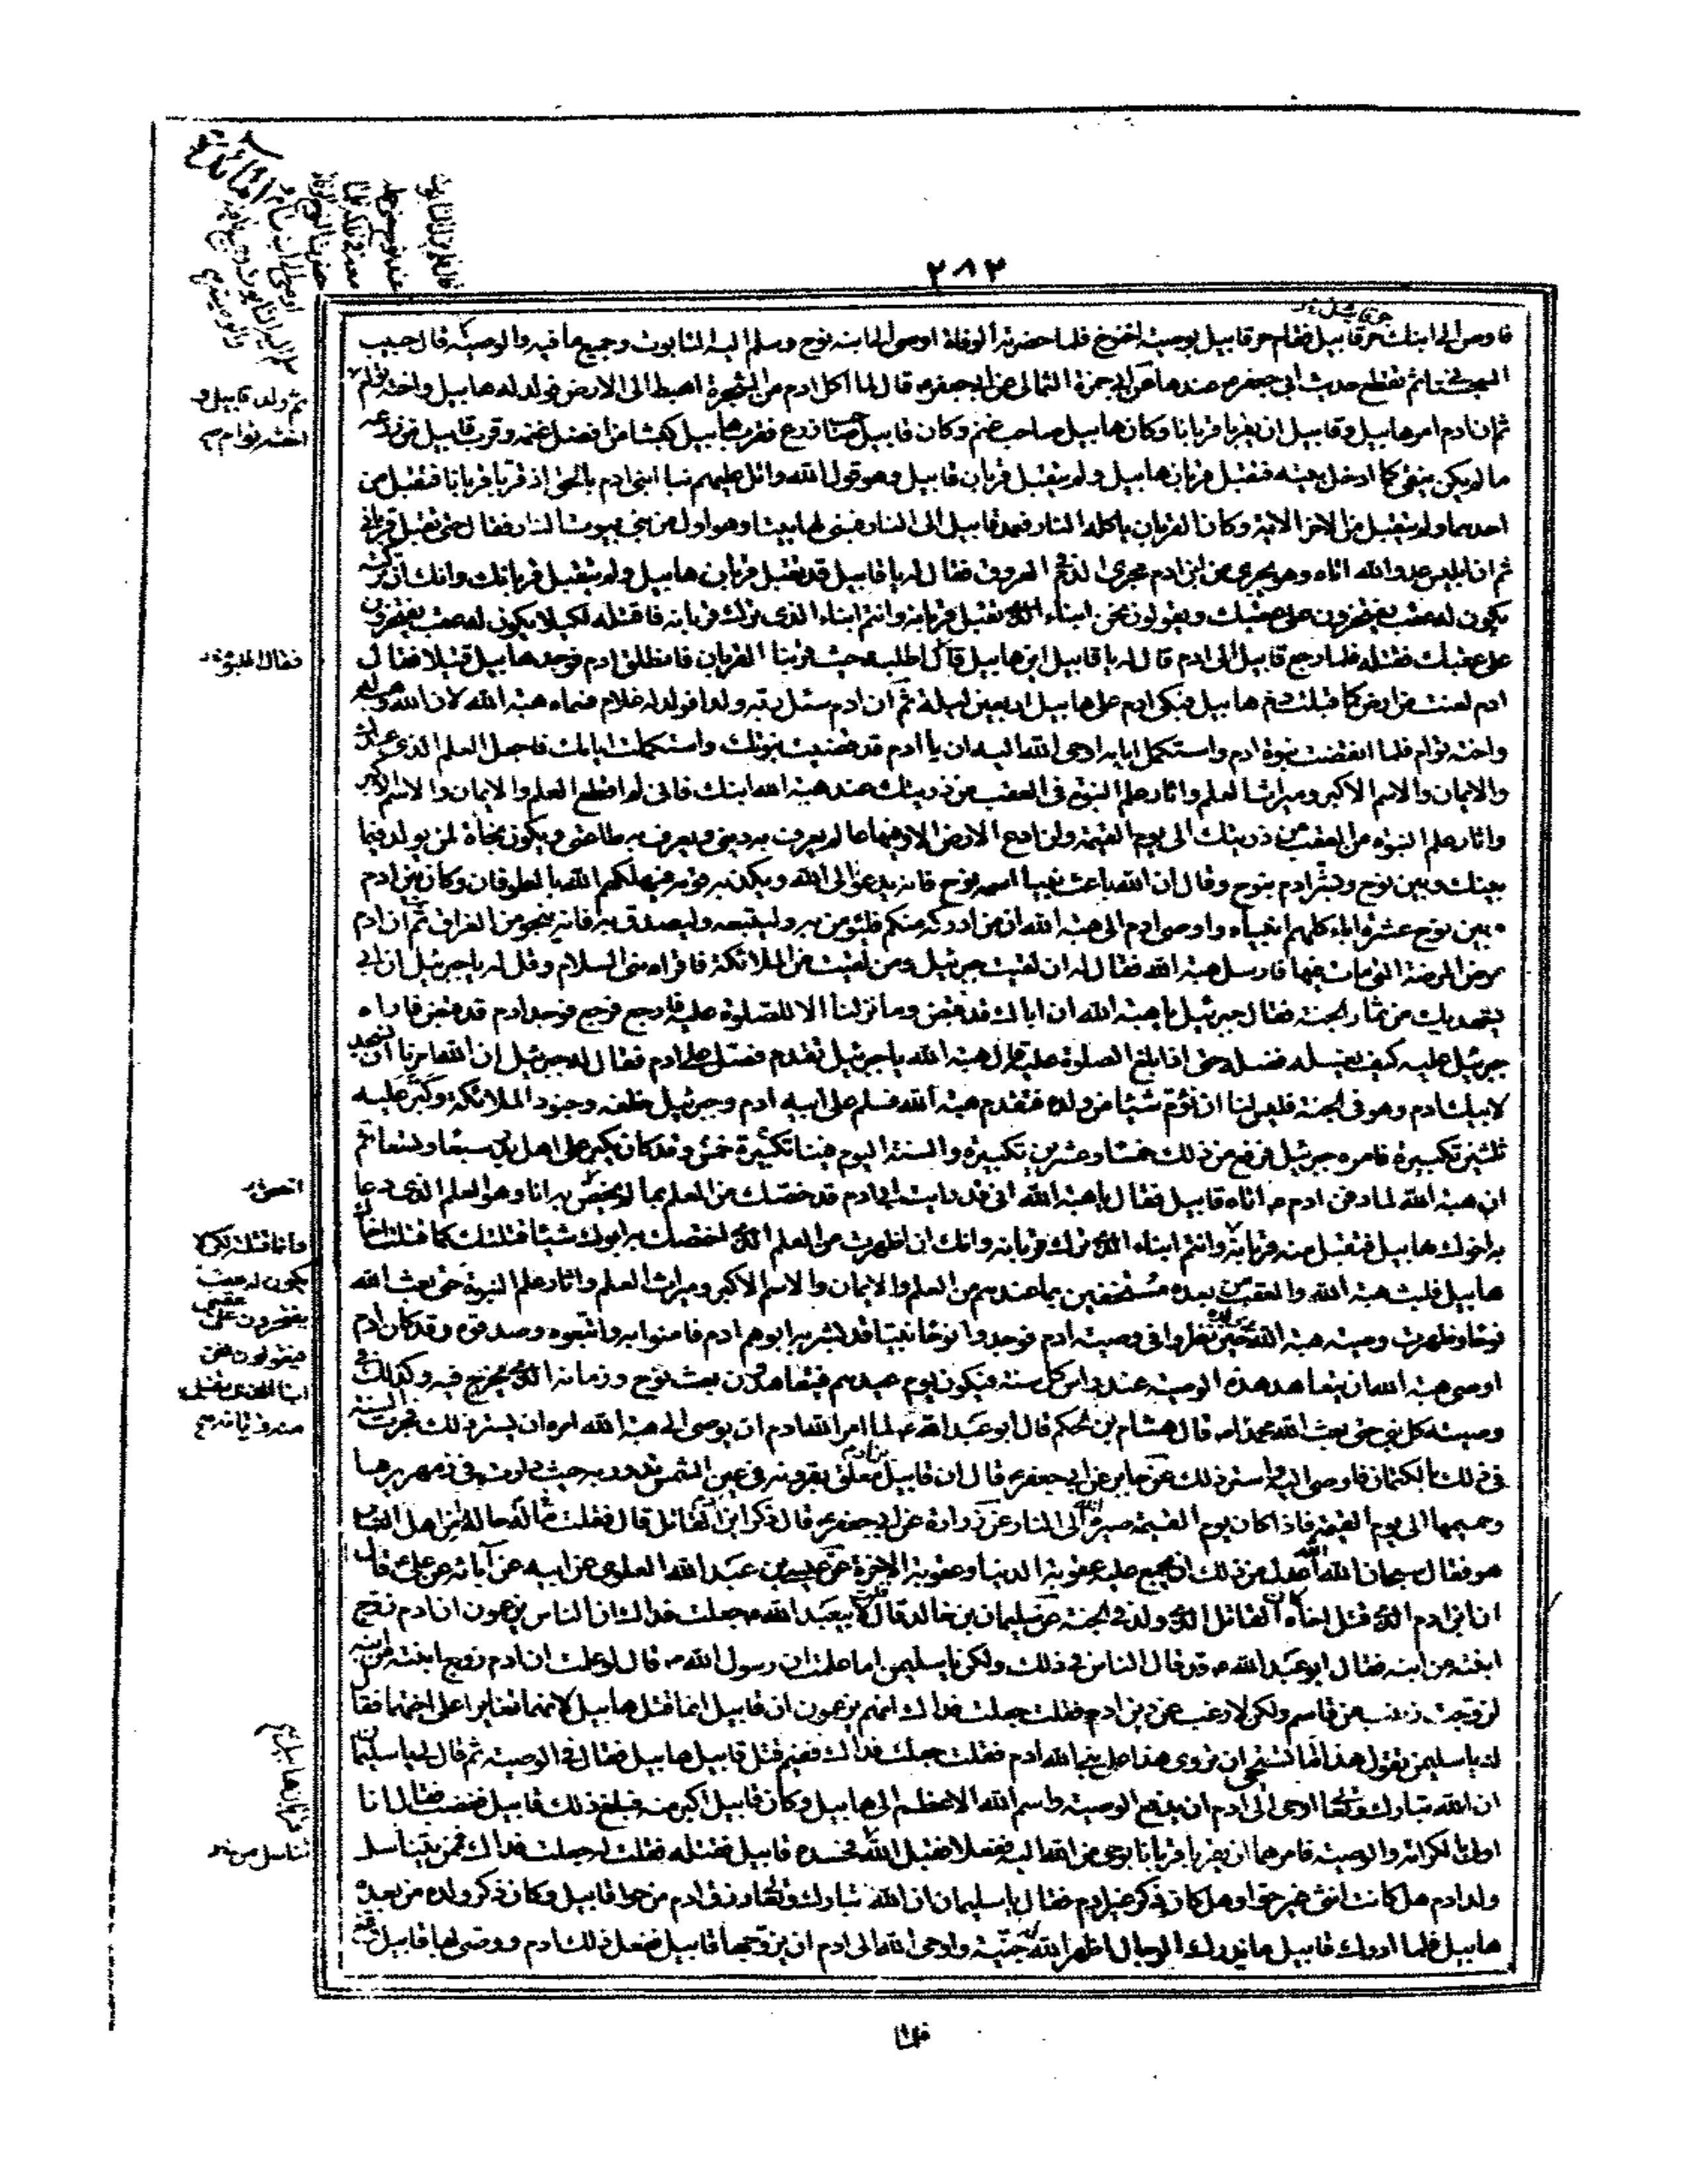 ٢٨٢
فاوص الى ابنك حرقابيل فقام حرقابيل بوصية اخنوخ فلما حضرته الوفاة اوصى الى ابنه نوح وسلم اليه التابوت وجميع ما فيه والوصية قال حبيب
السجستانى ثم تقطع حديث ابى جعفر ع عندها عن ابى حمزة الثمالى عن ابى جعفر ع قال لما اكل ادم من الشجرة اهبط الى الارض فولد له هابيل واخته توام
ثم ان ادم امر هابيل وقابيل ان يقربا قربانا وكان هابيل صاحب غنم وكان قابيل صاحب زرع فقرب هابيل كبشا من افضل غنمه وقرب قابيل من زرعه
ما لم يكن ينقى كما ادخل بيته فتقبل قربان هابيل ولم يتقبل قربان قابيل وهو قول الله واتل عليهم نبا ابنى ادم بالحق اذ قربا قربانا فتقبل من
احدهما ولم يتقبل من الاخر الاية وكان القربان ياكله النار فعمد قابيل الى النار فبنى لها بيتا وهو اول من بنى بيوت النار فقال حتى تقبل قربانى
ثم ان ابليس عدو الله اتاه وهو يجرى من ابن ادم مجرى الدم فى العروق فقال له يا قابيل قد تقبل قربان هابيل ولم يتقبل قربانك وانك ان تركته
يكون له عقب يفتخرون على عقبك ويقولون نحن ابناء الذى تقبل قربانه وانتم ابناء الذى ترك قربانه فاقتله لكيلا يكون له عقب يفتخرون
على عقبك فقتله فلما رجع قابيل الى ادم قال له يا قابيل اين هابيل قال اطلبه حيث قربنا القربان فانطلق ادم فوجد هابيل قتيلا فقال
ادم لعنت من ارض كما قبلت دم هابيل فبكى ادم على هابيل اربعين ليلة ثم ان ادم سئل ربه ولدا فولد له غلام فسماه هبة الله لان الله وهبه له
واخته توام فلما انقضت نبوة ادم واستكمل ايامه اوحى الله اليه ان يا ادم قد قضيت نبوتك واستكملت ايامك فاجعل العلم الذى عندك
والايمان والاسم الاكبر وميراث العلم واثار علم النبوة فى العقب من ذريتك عند هبة الله ابنك فانى لم اقطع العلم والايمان والاسم الاكبر
واثار علم النبوة من العقب من ذريتك الى يوم القيمة ولن ادع الارض الا وفيها عالم يعرف به دينى ويعرف به طاعتى ويكون نجاة لمن يولد فيما
بينك وبين نوح وبشر ادم بنوح وقال ان الله باعث نبيا اسمه نوح فانه يدعو الى الله ويكذبه قومه فيهلكهم الله بالطوفان وكان بين ادم
وبين نوح عشرة اباء كلهم انبياء واوصى ادم الى هبة الله ان من ادركه منكم فليؤمن به وليتبعه وليصدق به فانه ينجو من الغرق ثم ان ادم
مرض المرضة التى مات فيها فارسل هبة الله فقال له ان لقيت جبرئيل ومن لقيت من الملائكة فاقراه منى السلام وقل له يا جبرئيل ان ابى
يستهديك من ثمار الجنة فقال جبرئيل يا هبة الله ان اباك قد قبض وما نزلنا الا للصلوة عليه فارجع فرجع فوجد ادم قد قبض فاراه
جبرئيل عليه كيف يغسله فغسله حتى اذا بلغ الصلوة عليه قال هبة الله يا جبرئيل تقدم فصل على ادم فقال له جبرئيل ان الله امرنا ان نسجد
لابيك ادم وهو فى الجنة فليس لنا ان نؤم شيئا من ولده فتقدم هبة الله فسلم على ابيه ادم وجبرئيل خلفه وجنود الملائكة وكبر عليه
ثلثين تكبيرة فامره جبرئيل فرفع من ذلك خمسا وعشرين تكبيرة والسنة اليوم فينا تكبيرة خمس وقد كان يكبر على اهل بدر سبعا وتسعا ثم
ان هبة الله لما دفن ادم ع اتاه قابيل فقال يا هبة الله انى قد رايت ابى ادم قد خصك من العلم بما لم يخصنى به انا وهو العلم الذى دعا
به اخوك هابيل فتقبل منه قربانه وانتم ابناء الذى ترك قربانه وانك ان اظهرت من العلم الذى اختصك به ابوك شيئا قتلتك كما قتلت اخاك
هابيل فلبث هبة الله والعقب من بعده مستخفين بما عندهم من العلم والايمان والاسم الاكبر وميراث العلم واثار علم النبوة حتى بعث الله
نوحا وظهرت وصية هبة الله حين نظروا فى وصية ادم فوجدوا نوحا نبيا قد بشر به ابوهم ادم فامنوا به واتبعوه وصدقوه وقد كان ادم
اوصى هبة الله ان يتعاهد هذه الوصية عند راس كل سنة فيكون يوم عيدهم فيتعاهدون بعث نوح وزمانه الذى يخرج فيه وكذلك فى
وصية كل نبى حتى بعث الله محمدا ص قال هشام بن الحكم قال ابو عبد الله ع لما امر الله ادم ان يوصى الى هبة الله امره ان يستر ذلك فجرت السنة
فى ذلك بالكتمان فاوصى اليه واستر ذلك عن جابر عن ابى جعفر ع قال ان قابيل بن ادم معلق بقرونه فى عين الشمس تدور به حيث دارت فى زمهريرها
وحميمها الى يوم القيمة فاذا كان يوم القيمة صيره الله الى النار عن زرارة عن ابى جعفر ع قال ذكر ابن ادم القاتل قال فقلت له ما حاله امن اهل النار
هو فقال سبحان الله الله اعدل من ذلك ان يجمع عليه عقوبة الدنيا وعقوبة الاخرة عن عيسى بن عبد الله العلوى عن ابيه عن آبائه عن على ع قال
ان ابن ادم الذى قتل اخاه كان القاتل الذى ولد فى الجنة عن سليمان بن خالد قال قلت لابى عبد الله ع جعلت فداك ان الناس يزعمون ان ادم زوج
ابنته من ابنه فقال ابو عبد الله ع قد قال الناس فى ذلك ولكن يا سليمان اما علمت ان رسول الله ص قال لو علمت ان ادم زوج ابنته من ابنه
لزوجت زينب من قاسم ولكن لارغب عن دين ادم فقلت جعلت فداك انهم يزعمون ان قابيل انما قتل هابيل لانهما تغايرا على اختهما فقال
له يا سليمان تقول هذا اما تستحيى ان تروى هذا على نبى الله ادم فقلت جعلت فداك ففيم قتل قابيل هابيل فقال فى الوصية ثم قال لى يا سليمان
ان الله تبارك وتعالى اوحى الى ادم ان يدفع الوصية واسم الله الاعظم الى هابيل وكان قابيل اكبر منه فبلغ ذلك قابيل فغضب فقال انا
اولى بالكرامة والوصية فامرهما ان يقربا قربانا بوحى من الله اليه ففعلا فتقبل الله فحسده قابيل فقتله فقلت له جعلت فداك فممن يتناسل
ولد ادم هل كانت انثى غير حوا وهل كان ذكر غير ادم فقال يا سليمان ان الله تبارك وتعالى رزق ادم من حوا قابيل وكان ذكر ولده من بعده
هابيل فلما ادرك قابيل ما يدرك الرجال اظهر الله جنية واوحى الله الى ادم ان يزوجها قابيل ففعل ذلك ادم ورضى بها قابيل وقنع
ثم ولد قابيل و
اخته توام
فقال اطلبه
اخصك
وانا قتلته لكيلا
يكون له عقب
يفتخرون على عقبى
فيقولون نحن
ابناء الذى تقبل
منه قربانه
قربان هابيل
تناسل من
فلما